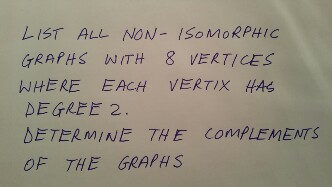 LIST ALL NON-ISOMORPHIC
GRAPHS WITH 8 VERTICES
WHERE EACH VERTIX HAS
DEGREE 2.
DETERMINE THE COMPLEMENTS
OF THE GRAPHS